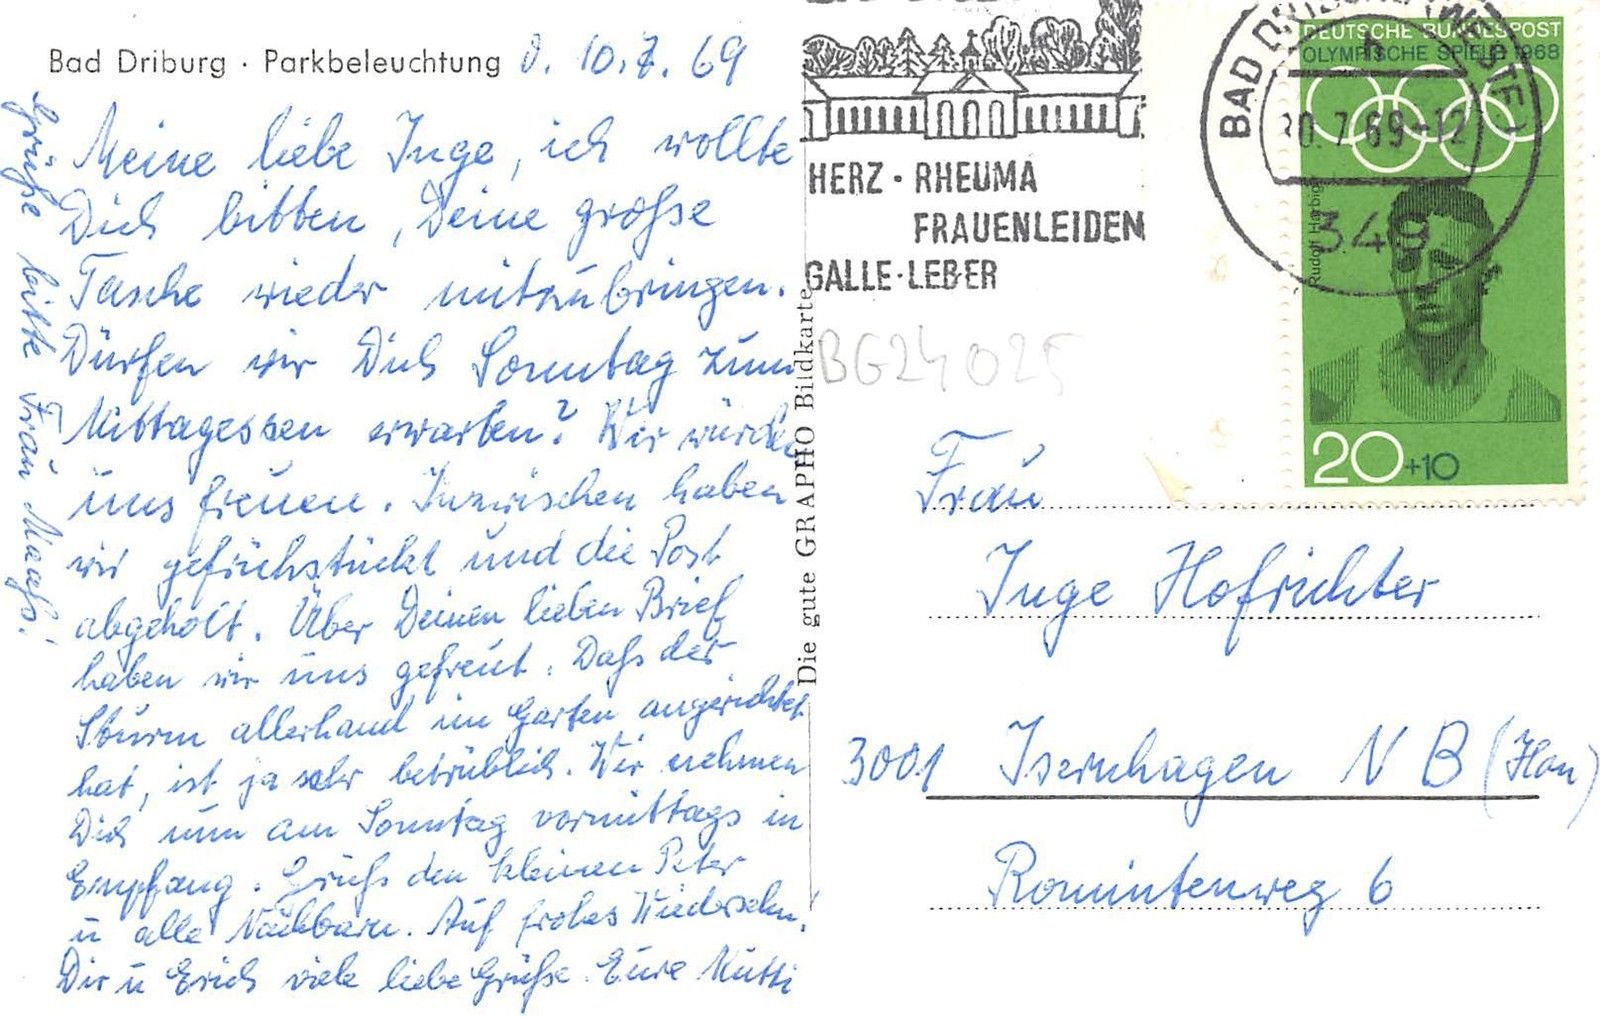 Bad Driburg · Parkbeleuchtung d. 10.7.69
Meine liebe Inge, ich wollte
Dich bitten, Deine große
Tasche wieder mitzubringen.
Dürfen wir Dich Sonntag zum
Mittagessen erwarten? Wir würden
uns freuen. Inzwischen haben
wir gefrühstückt und die Post
abgeholt. Über Deinen lieben Brief
haben wir uns gefreut. Daß der
Sturm allerhand im Garten angerichtet
hat, ist ja sehr betrüblich. Wir nehmen
Dich nun am Sonntag vormittags in
Empfang. Grüß den kleinen Peter
u alle Nachbarn. Auf frohes Wiedersehn!
Dir u Erich viele liebe Grüße. Eure Mutti
Grüße bitte Frau Maaß!
Die gute GRAPHO Bildkarte
HERZ · RHEUMA
FRAUENLEIDEN
GALLE · LEBER
BG24025
BAD DRIBURG (WESTF)
0.7.69-12
349
DEUTSCHE BUNDESPOST
OLYMPISCHE SPIELE 1968
Rudolf Harbig
20+10
Frau
Inge Hofrichter
3001 Isernhagen N B (Han)
Romintenweg 6